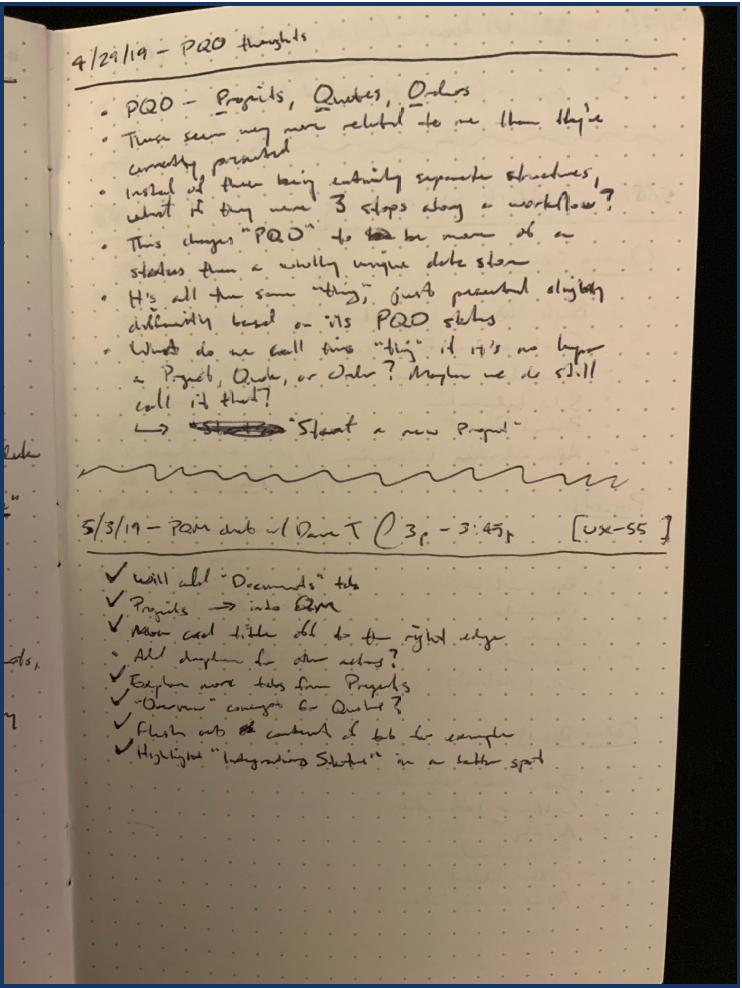 4/29/19 - PQO thoughts
• PQO - Projects, Quotes, Orders
• These seem way more related to me than they're
currently presented
• Instead of them being entirely separate structures,
what if they were 3 stops along a workflow?
• This changes "PQO" to be more of a
status than a wholly unique data store
• It's all the same "thing", just presented slightly
differently based on its PQO status
• What do we call this "thing" if it's no longer
a Project, Quote, or Order? Maybe we do still
call it that?
↳ "Start a new Project"
5/3/19 - PQM w/ Dave T @ 3p - 3:45p [UX-55]
✓ Will add "Documents" tab
✓ Projects → into QM
✓ Move card title off to the right edge
• Add dropdown for other actions?
✓ Explore more tabs from Projects
✓ "Overview" concept for Quotes?
✓ Flesh out contents of tab for example
✓ Highlight "Integration Status" in a better spot